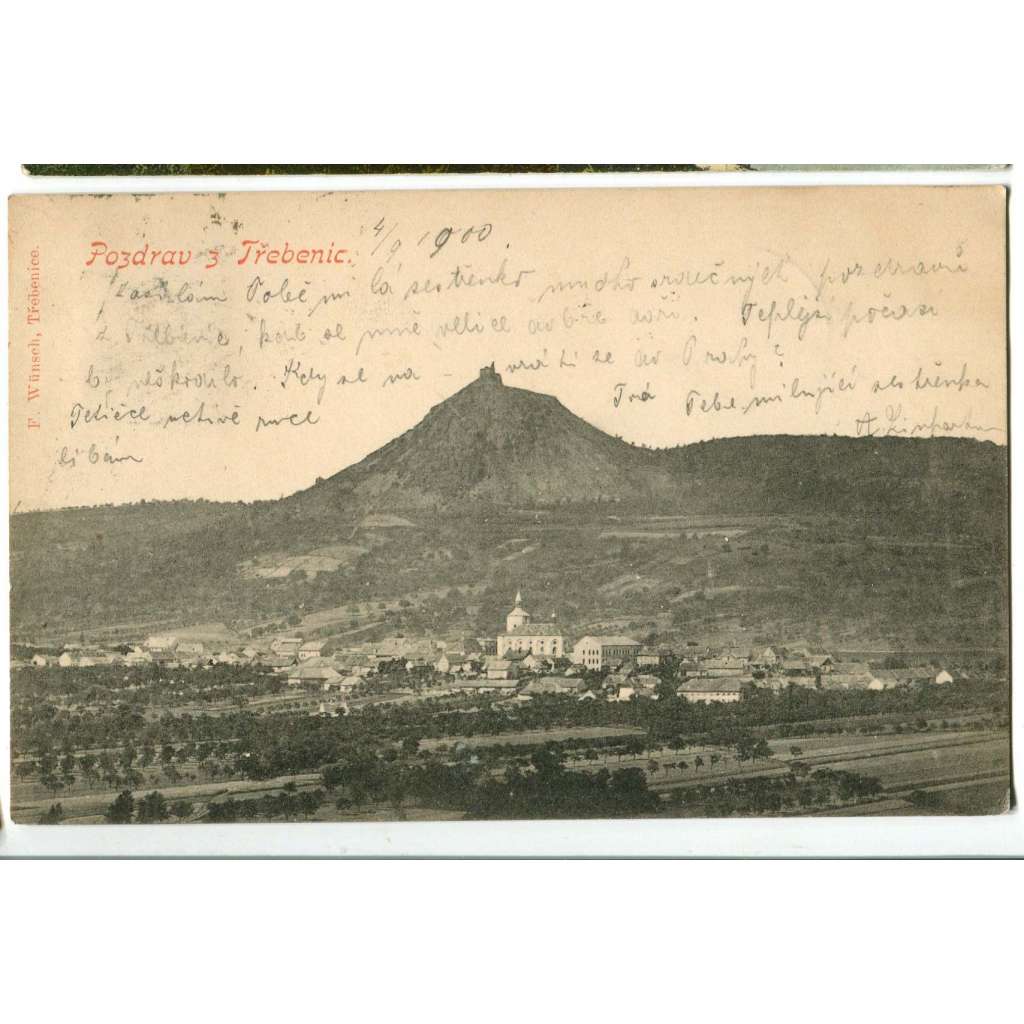 F. Wünsch, Třebenice.
Pozdrav z Třebenic.
4/9 1900.
Zasílám Tobě milá sestřenko mnoho srdečných pozdravů
z Třebenic, kde se mně velice dobře daří. Teplejší počasí
by neškodilo. Kdy se na - vrátíš se do Prahy?
Tetičce uctivě ruce
líbám
Tvá Tebe milující sestřenka
A.